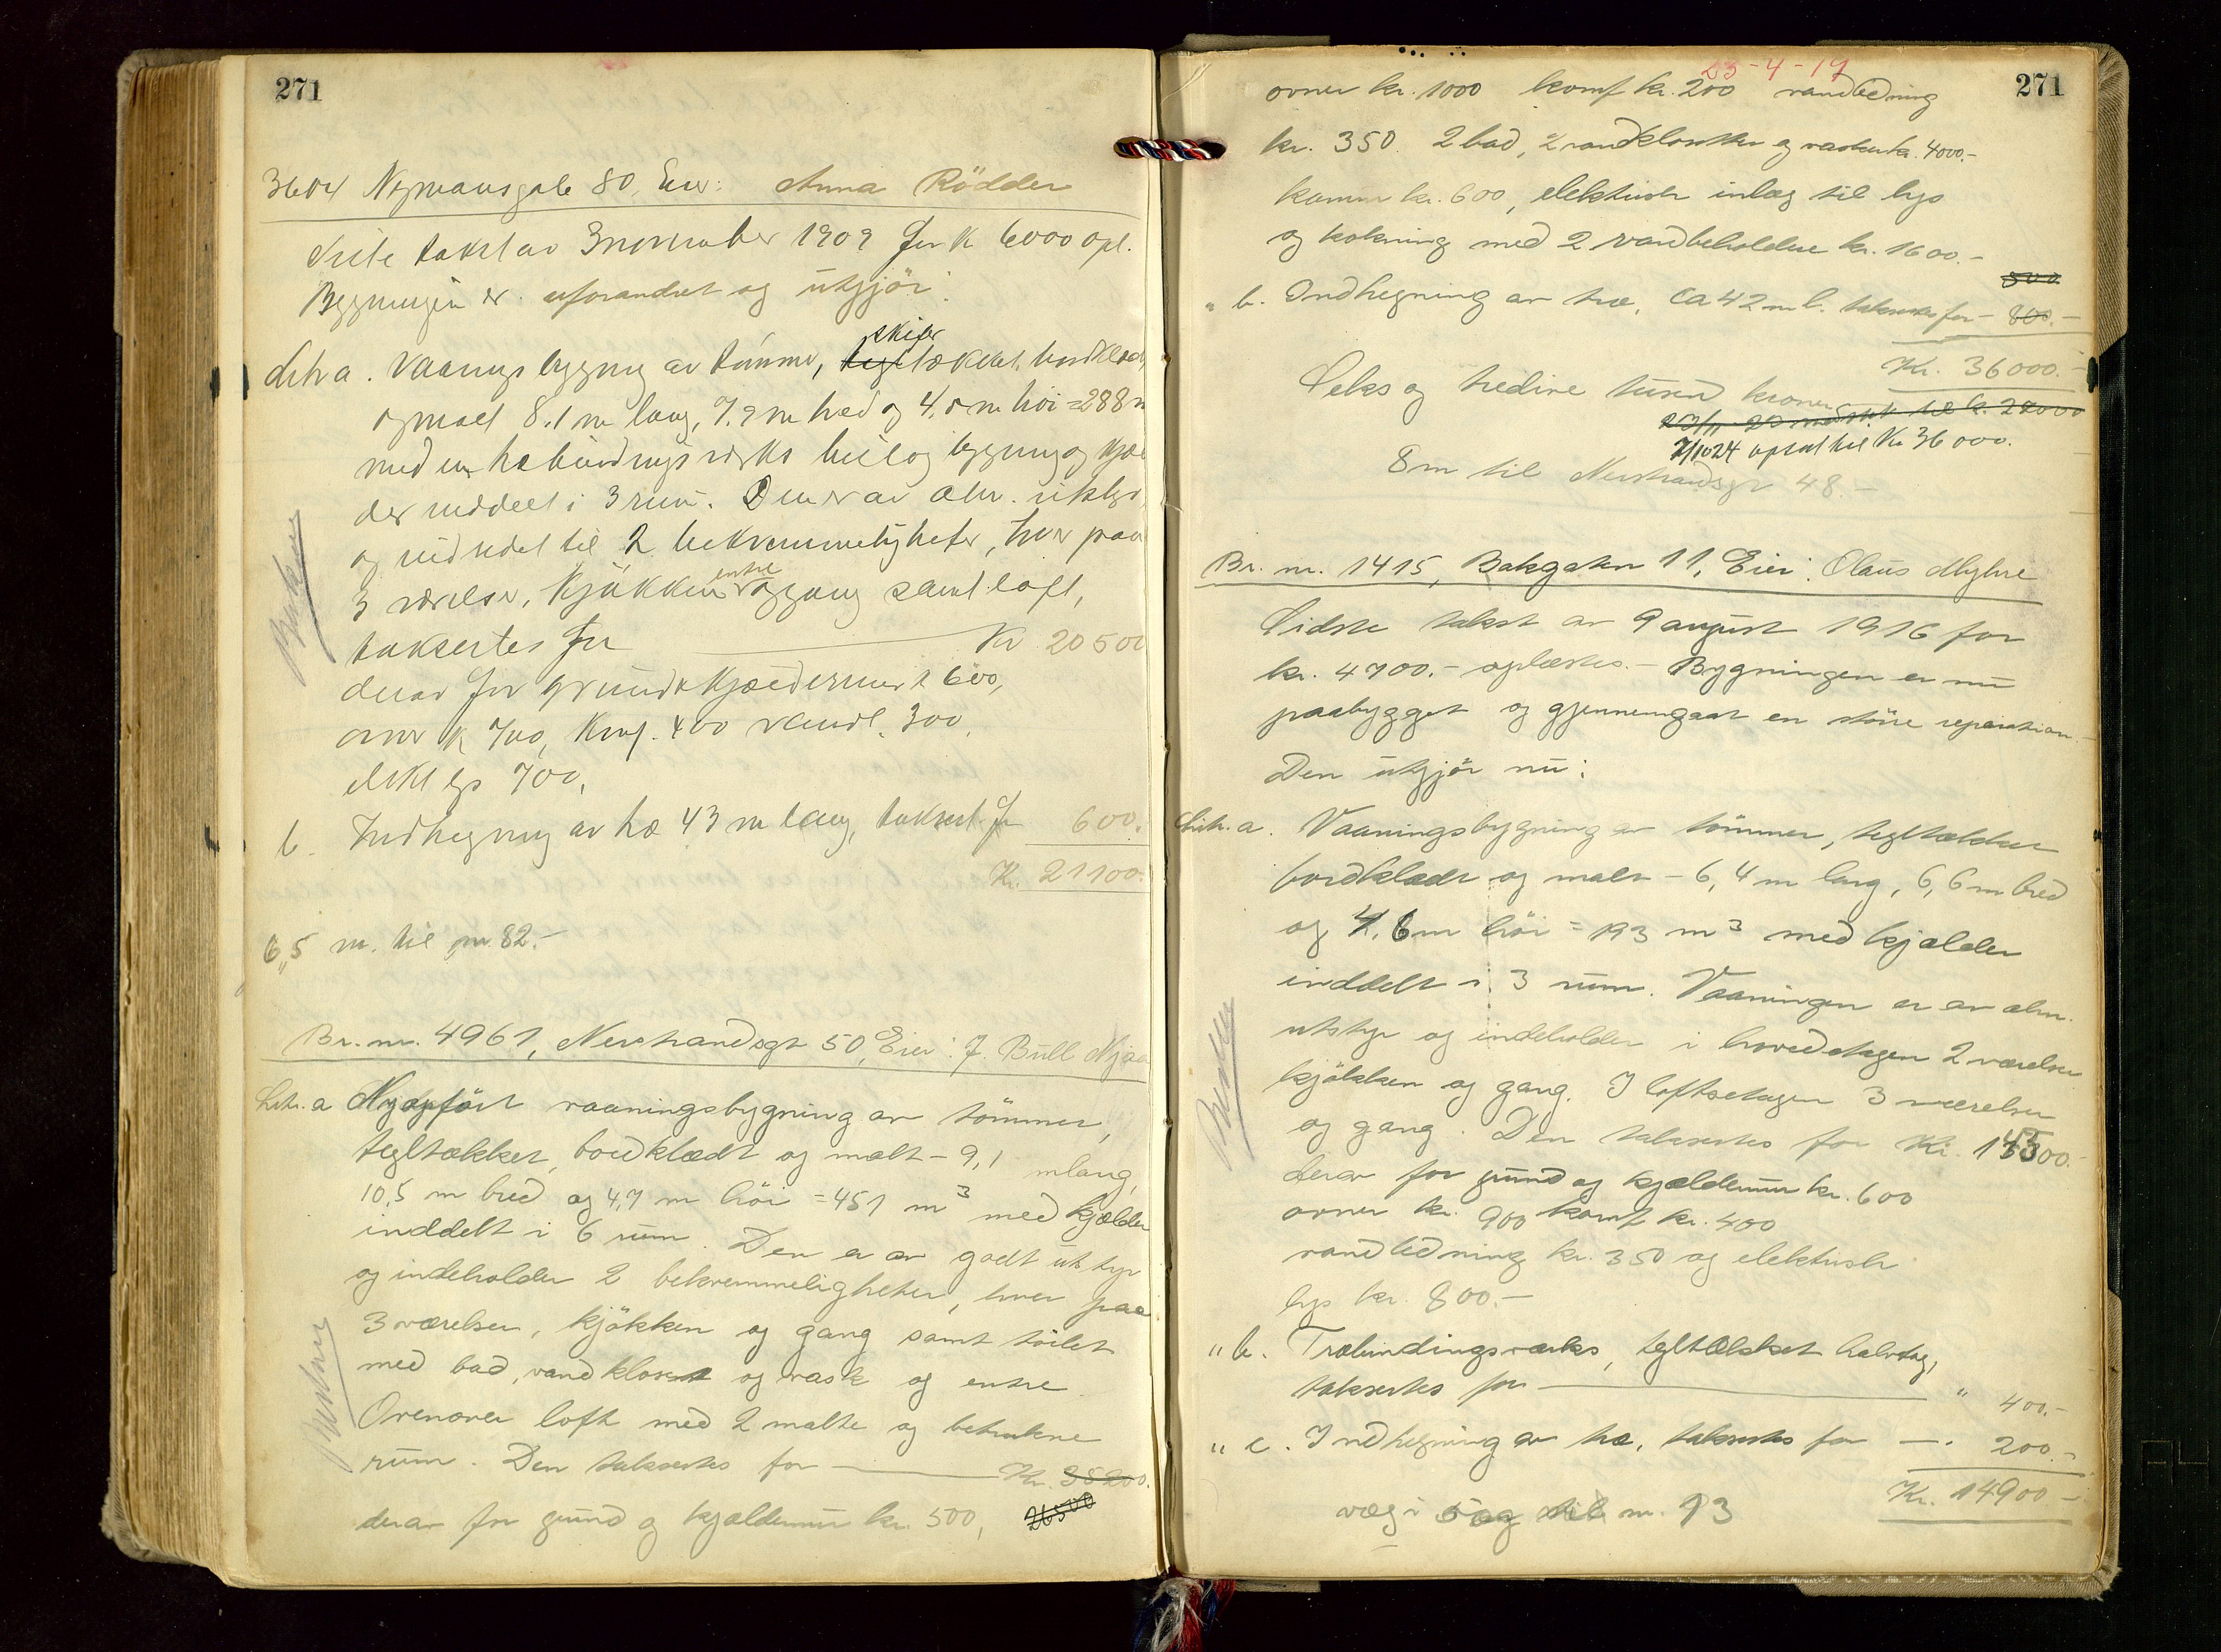 271
3604 Nymansgate 80, Eier: Anna Rödder
Siste takst av 3 november 1909 for K 6000 opl.
Bygningen er uforandret og utgjör:
Litr a. Vaaningsbygning av tömmer, skifer
tegltækket, bordklædt,
og malt 8.1 m lang, 7.9 m bred og 4.5 m höi = 288 m
med en træbindingsværks tilbygning og kjæl
der inddelt i 3 rum. Den er av alm. utstyr,
og indredet til 2 bekvemmeligheter, hver paa
3 værelser, kjökken entre og gang samt loft,
taksertes for Kr 20500
derav for grund & kjældermur k 600,
ovner k 700, Kmf. 400 vandl. 300,
elekt lys 700,
b. Indhegning av træ 43 m lang, taksert for 600.
Kr. 21100.
6,5 m. til nr. 82.-
Br. nr. 4961, Nerstrandsgt 50, Eier: J. Bull Njaa
Litr. a Nyopfört vaaningsbygning av tömmer,
tegltækket, bordklædt og malt - 9,1 m lang,
10,5 m bred og 4,7 m höi = 451 m3 med kjælder
inddelt i 6 rum. Den er av godt utstyr
og indeholder 2 bekvemmeligheter, hver paa
3 værelser, kjökken og gang samt toilet
med bad, vandkloset og vask og entre.
Ovenover loft med 2 malte og betrukne
rum. Den taksertes for Kr. 35200.
derav for grund og kjældermur kr. 500, 26500
23-4-19
271
ovner kr. 1000 komf kr. 200 vandledning
kr. 350. 2 bad, 2 vandklosetter og vasker kr. 4000.-
kamin kr. 600, elektrisk inlæg til lys
og kokning med 2 vandbeholdere kr. 1600.-
500
" b. Indhegning av træ, ca 42 m l. taksertes for - 800.-
Kr. 36000.-
Seks og tredive tusen kroner
2/10 24 opsat til Kr 36000.
8 m til Nerstrandsgt 48.-
Br. nr. 1415, Bakgaten 11, Eier: Olaus Myhre
Sidste takst av 9 august 1916 for
kr. 4700.- oplæstes.- Bygningen er nu
paabygget og gjennemgaat en större reparation.
Den utgjör nu:
Litr. a. Vaaningsbygning av tömmer, tegltækket
bordklædt og malt - 6,4 m lang, 6,6 m bred
og 4,6 m höi = 193 m3 med kjælder
inddelt i 3 rum. Vaaningen er av alm.
utstyr og indeholder i hovedetagen 2 værelser
kjökken og gang. I loftsetagen 3 værelser
og gang. Den taksertes for Kr. 14300.-
derav for grund og kjældermur kr. 600
ovner kr. 900 komf kr. 400
vandledning kr. 350 og elektrisk
lys kr. 800.-
" b. Træbindingsværks, tegltækket halvtag,
taksertes for " 400.-
" c. Indhegning av træ, taksertes for - 200.-
Kr. 14900.-
væg i væg til nr. 13